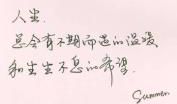 人生.
总会有不期而遇的温暖
和生生不息的希望.
Summer